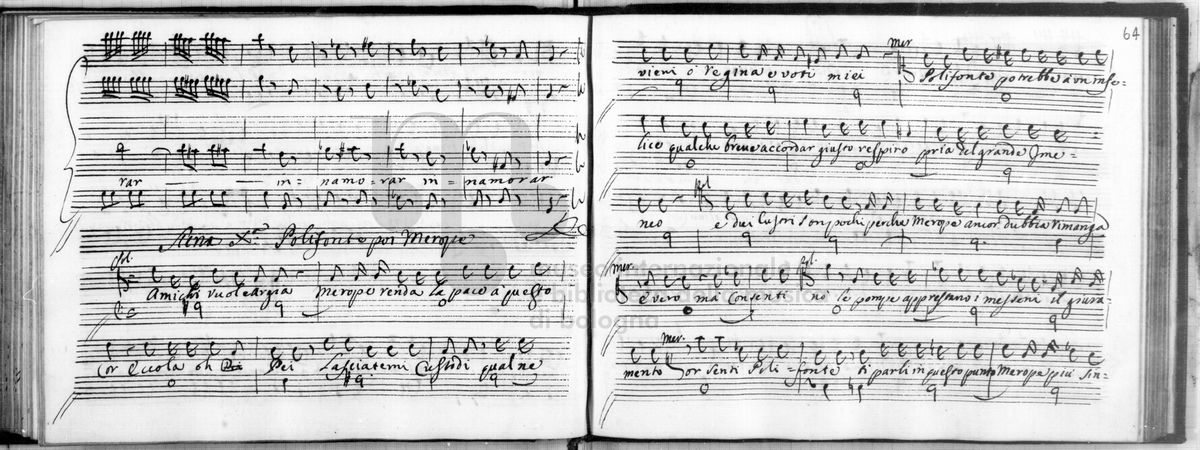 rar in= namo=rar in= namorar
Scena X.ma Polifonte poi Merope
Pol.
Amichi vuole Argia Merope renda la pace a questo
Cor Dei Lasciatemi Custodi qual ne
64
vieni ò Regina e voti miei
Mer.
Polifonte potrebbe à un infe=
lice qualche breve accordar giusto respiro pria del grande Ime=
neo
Pol.
e dui lustri son pochi perche Merope ancor dubbia rimanga
Mer.
è vero ma Consenti
Pol.
no le pompe apprestano i messeni il giura=
mento
Mer.
or senti Poli=fonte ti parli in questo punto Merope più sin=
museo internazionale
e biblioteca della musica
di bologna